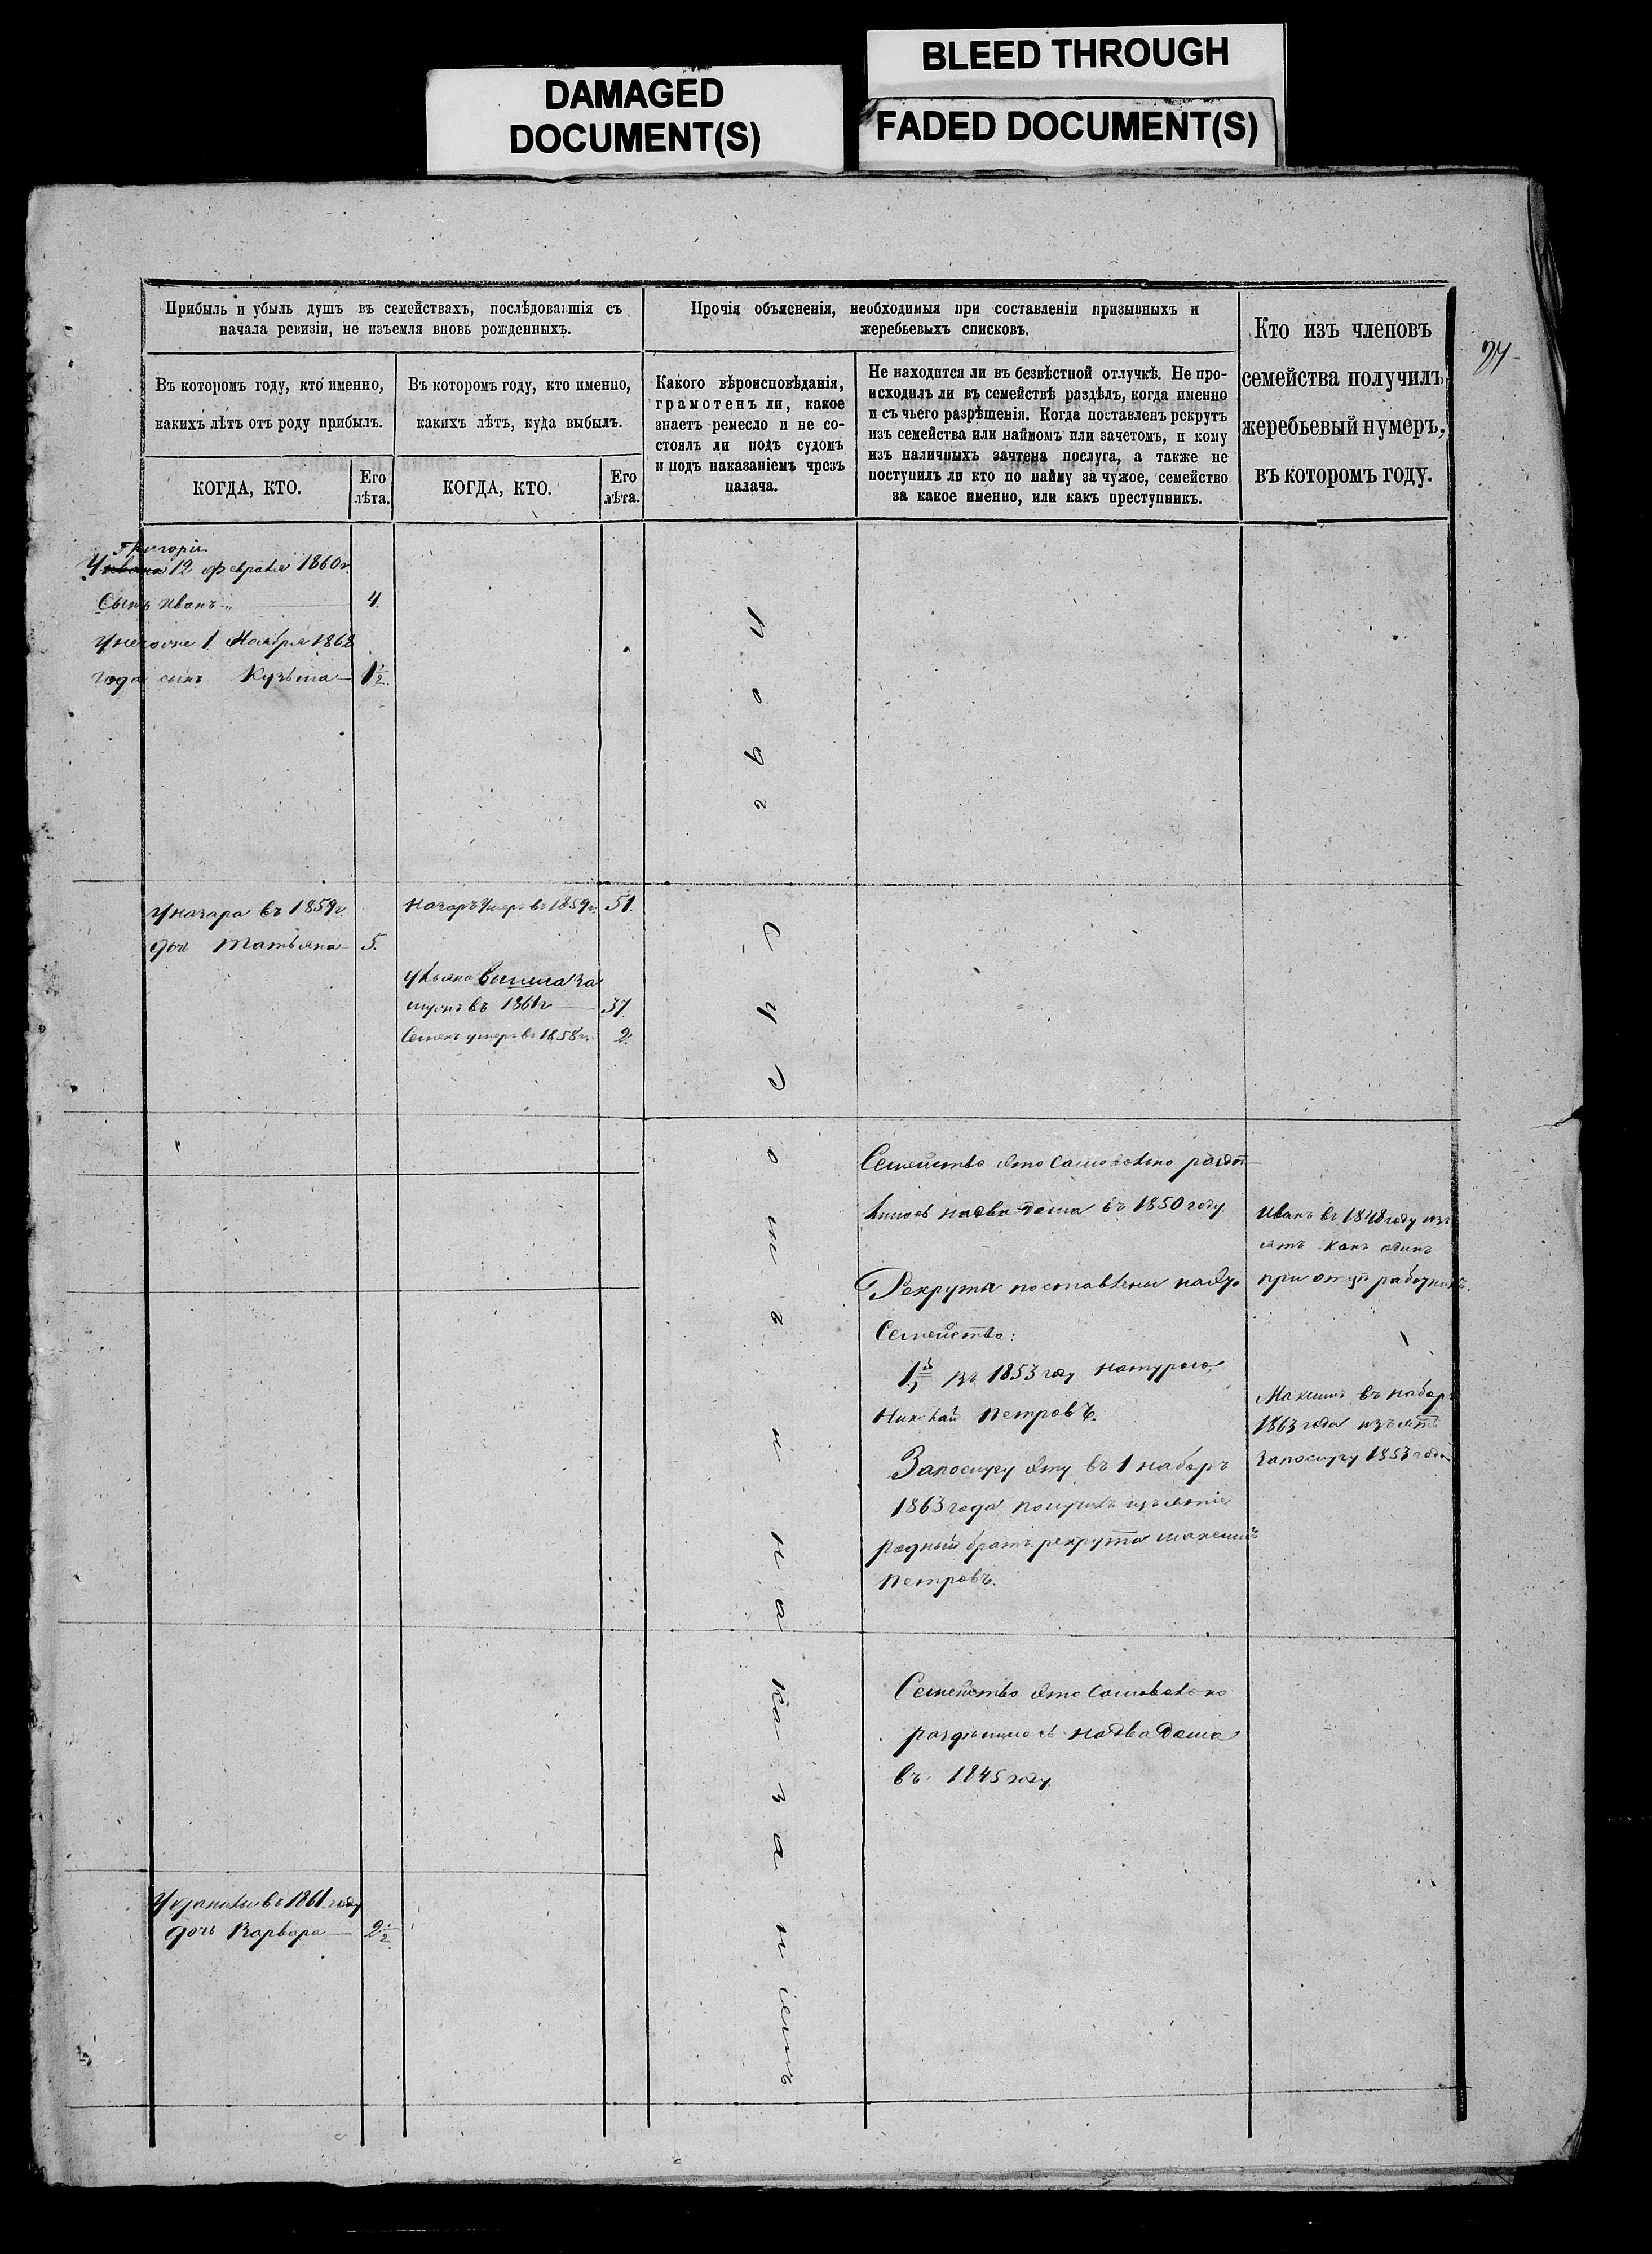 DAMAGED
DOCUMENT(S)
BLEED THROUGH
FADED DOCUMENT(S)
Прибыль и убыль душъ въ семействахъ, послѣдовавшія съ
начала ревизіи, не изъемля вновь рожденныхъ.
Въ которомъ году, кто именно,
какихъ лѣтъ отъ роду прибылъ.
КОГДА, КТО.
Его
лѣта.
Въ которомъ году, кто именно,
какихъ лѣтъ, куда выбылъ.
КОГДА, КТО.
Его
лѣта.
Прочія объясненія, необходимыя при составленіи призывныхъ и
жеребьевыхъ списковъ.
Какого вѣроисповѣданія,
грамотенъ ли, какое
знаетъ ремесло и не со-
стоялъ ли подъ судомъ
и подъ наказаніемъ чрезъ
палача.
Не находится ли въ безвѣстной отлучкѣ. Не про-
исходилъ ли въ семействѣ раздѣлъ, когда именно
и съ чьего разрѣшенія. Когда поставленъ рекрутъ
изъ семейства или наймомъ или зачетомъ, и кому
изъ наличныхъ зачтена послуга, а также не
поступилъ ли кто по найму за чужое, семейство
за какое именно, или какъ преступникъ.
Кто изъ членовъ
семейства получилъ
жеребьевый нумеръ,
въ которомъ году.
Григорія
У Ивана 12 февраля 1860г.
Сынъ Иванъ 4.
У него же 1 Ноября 1862
года сынъ Кузьма 1½.
У назара въ 1859г.
доч Татьяна 5.
Назаръ Умеръ въ 1859г. 51.
замужъ въ 1861г 37.
Семенъ умеръ въ 1858г. 2.
Семейство это самовольно раздѣ
лилось на два дома въ 1850 году.
Рекрута поставлены
Семейство:
1й въ 1853 году натурою,
Николай Петровъ.
За послугу эту въ 1 наборъ
1863 года получилъ изъятіе
родный братъ рекрута Максимъ
Петровъ.
Иванъ въ 1848 году изъ
ятъ какъ одинъ
при отцѣ работникъ.
Максимъ въ наборъ
1863 года изъятъ
за послугу 1853 года
Семейство это самовольно
раздѣлилось на два дома
въ 1845 году.
У данилы въ 1861 году
дочь Варвара 2½.
подъ Судомъ и наказаніемъ